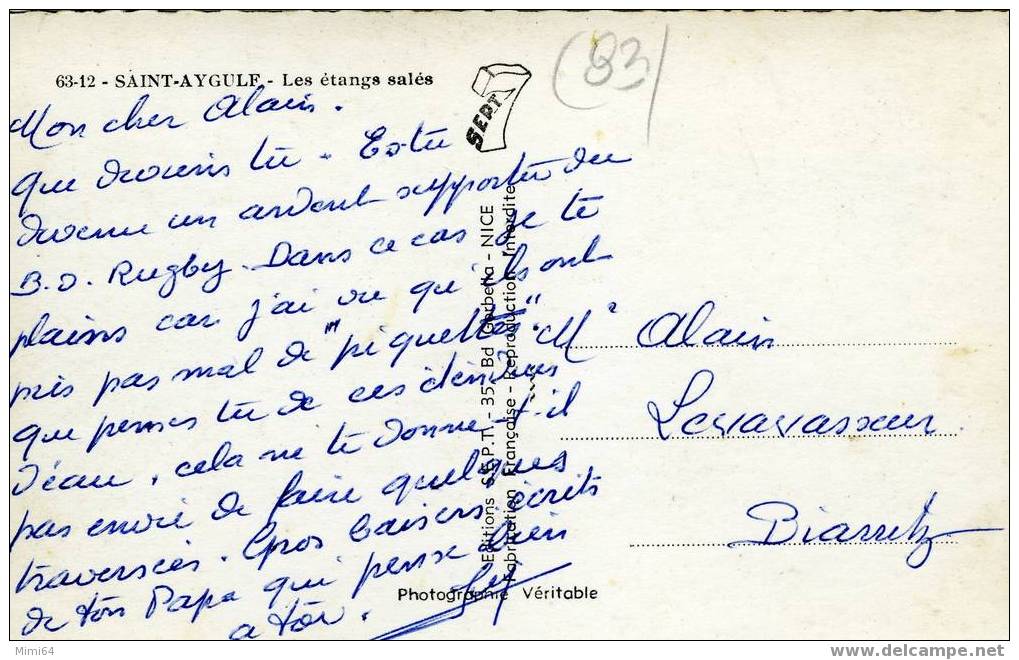 63-12 - SAINT-AYGULF - Les étangs salés
(83)
SEPT
Mon cher Alain.
Que deviens tu. Es-tu
devenu un ardent supporter du
B.O. Rugby. Dans ce cas je te
plains car j'ai vu qu'ils ont
pris pas mal de "piquettes".
Que penses tu de ces étendues
d'eau, cela ne te donne-t-il
pas envie de faire quelques
traversées. Gros baisers écrits
de ton Papa qui pense bien
a toi.
Mr Alain
Levavasseur
Biarritz
Editions S.E.P.T. - 353 Bd Gorbella - NICE
Fabrication Française - Reproduction Interdite
Photographie Véritable
Mimi64
www.delcampe.net